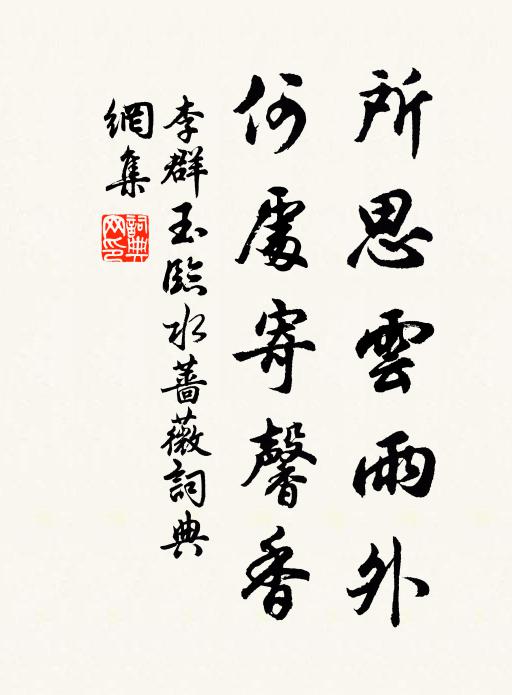 所思雲雨外
何處寄馨香
李群玉臨水薔薇詞典
網集
詞典網印